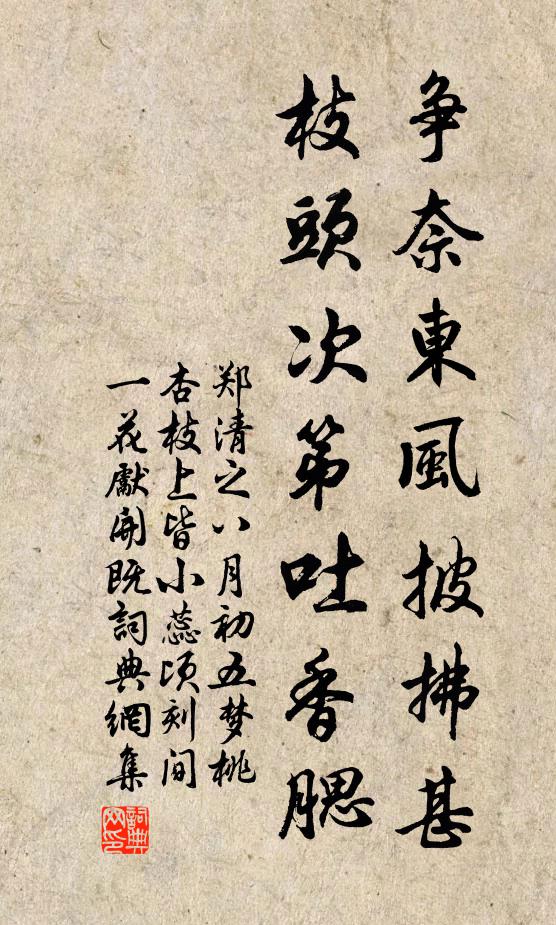 争奈東風披拂甚
枝頭次第吐香腮
郑清之八月初五梦桃
杏枝上皆小蕊顷刻间
一花獻開既詞典網集
詞典
网印